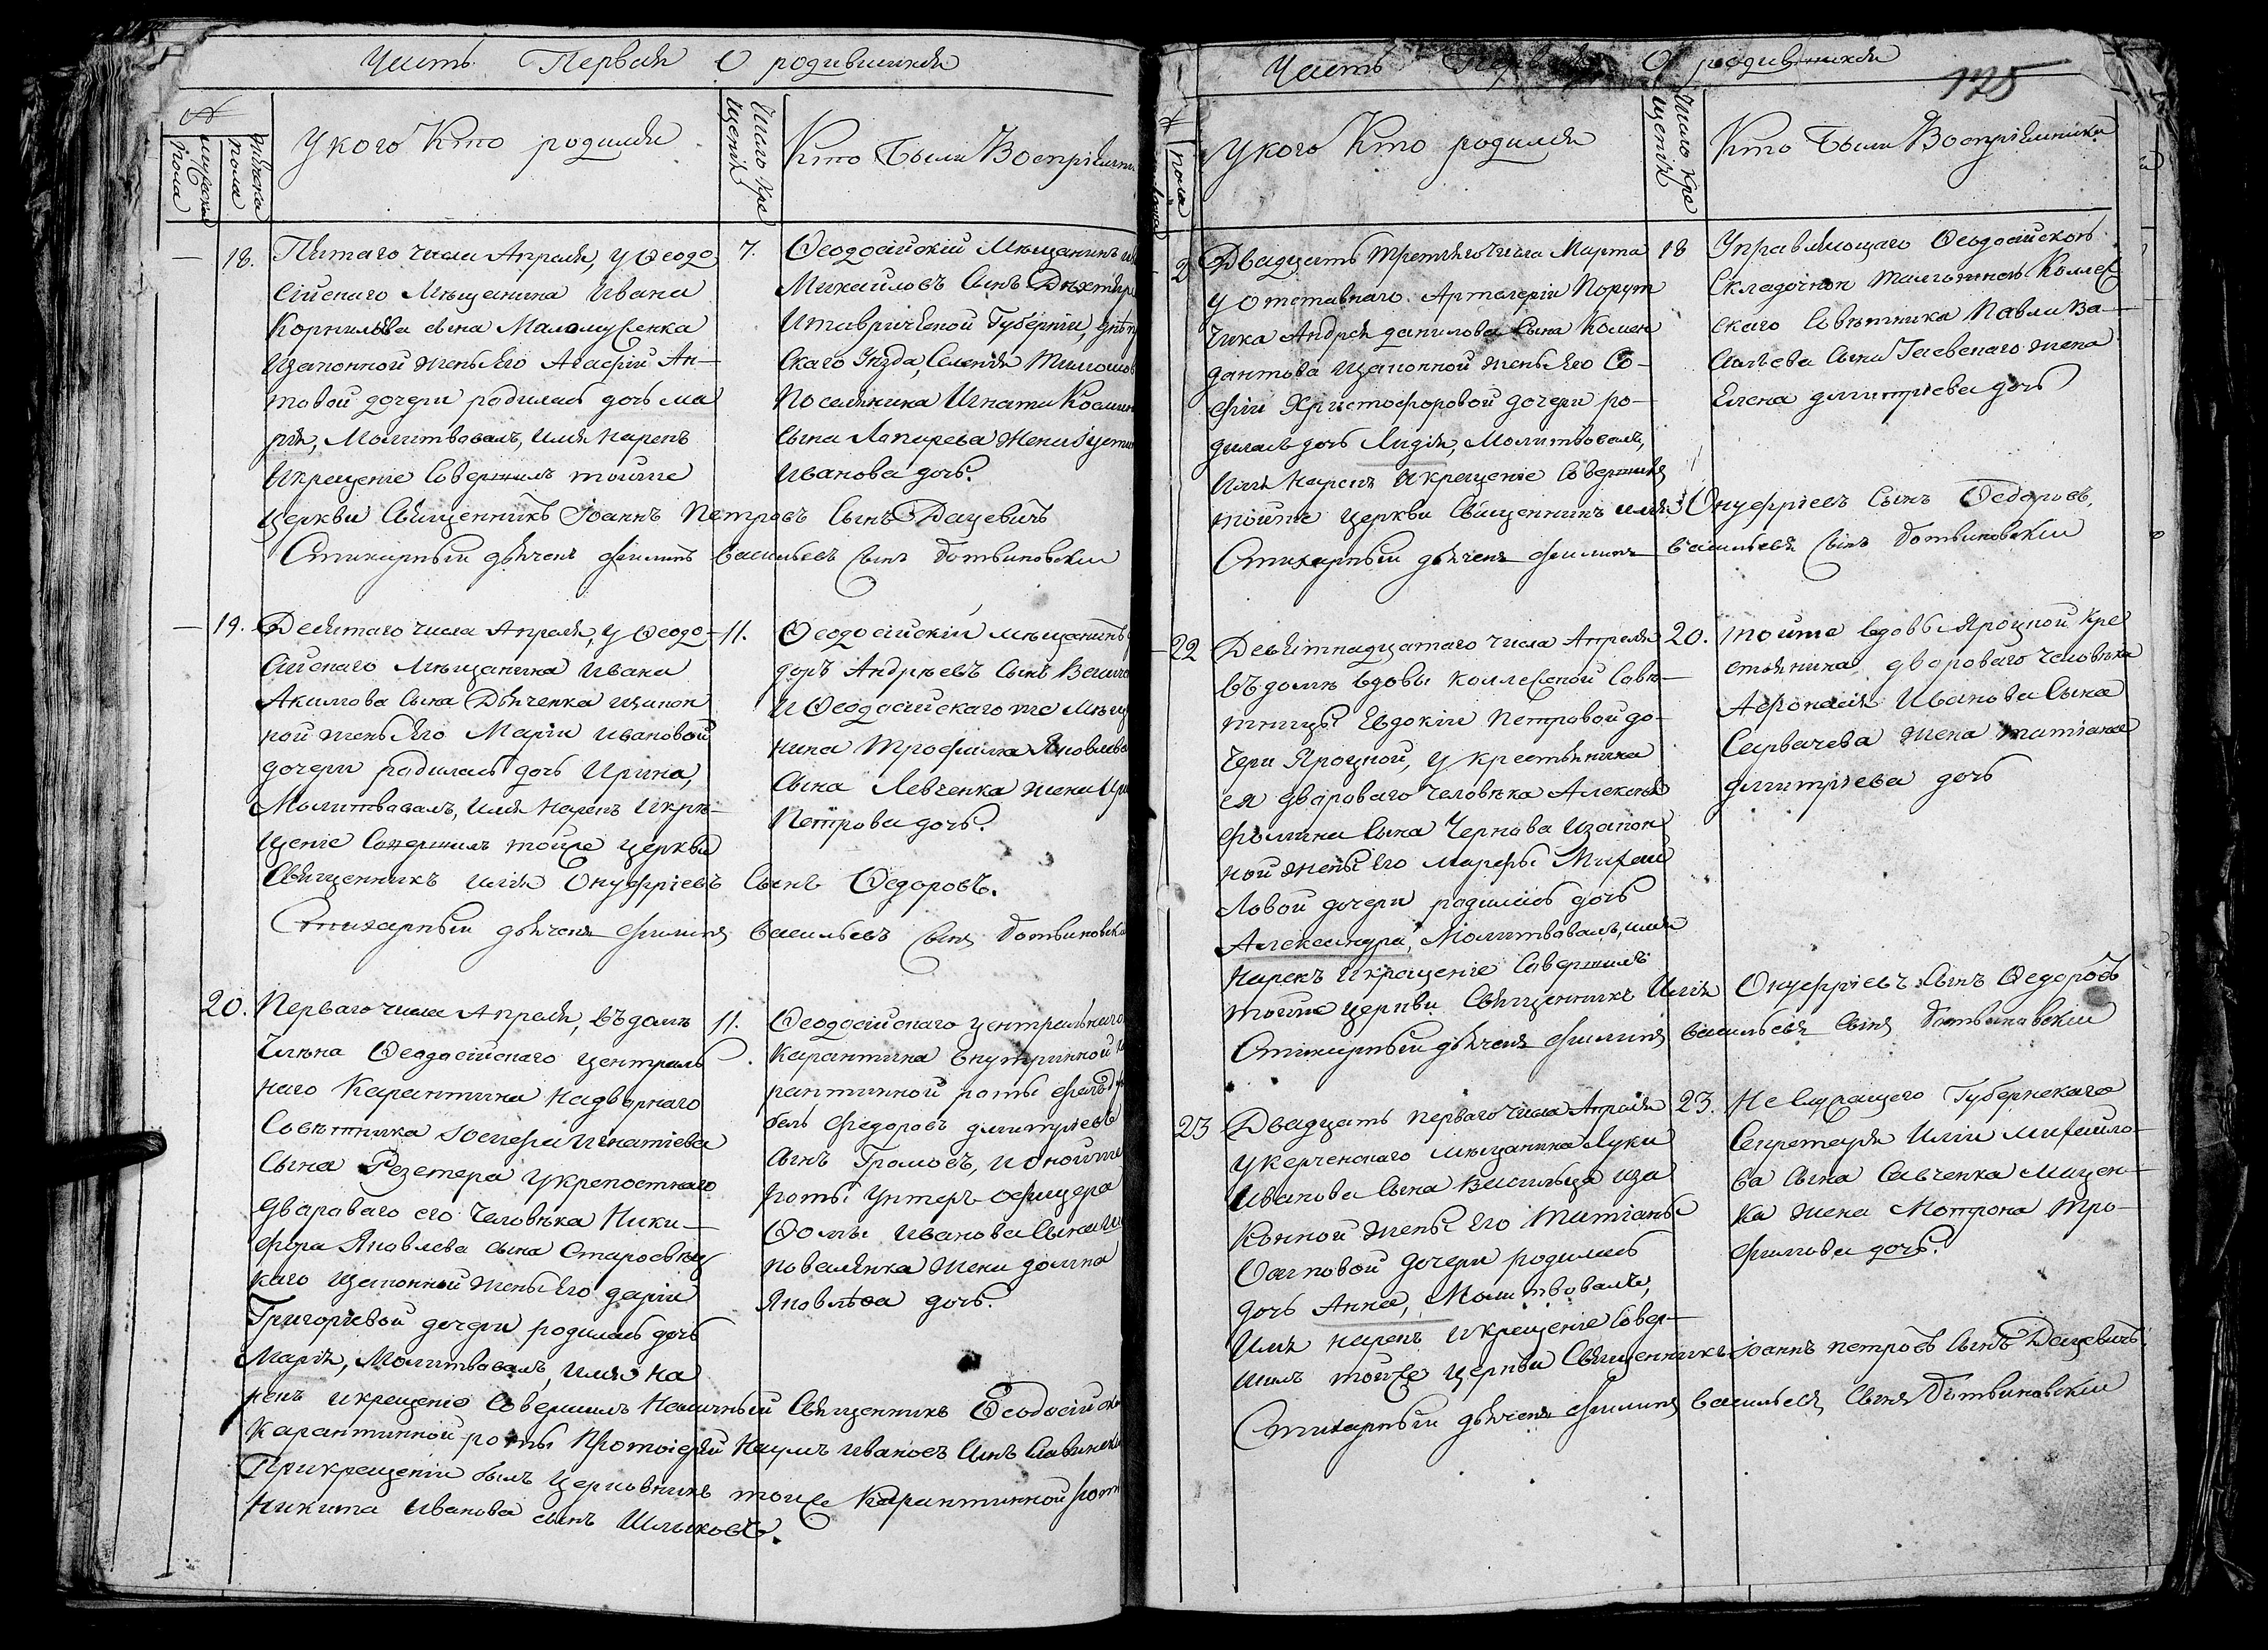 Часть Первая О родившихся
№
мужеска пола
женска пола
У кого Кто родился
Число кре
щенія
Кто Были Воспріемни
18.
Пятаго числа Апреля, у Ѳеодо
сійскаго Мѣщанина Ивана
Корнилова сына Маломуженка
изаконной жены Его Агафіи Ан-
товой дочери родилась дочь Ма
рія, Молитвовалъ, имя нарекъ
икрещеніе Совершилъ тойже
церкви Священникъ Іоаннъ Петровъ Сынъ Дацевичъ
Стихарный дьячекъ филипъ васильевъ сынъ Ботвиновскій
7.
Ѳеодосійскій Мѣщанинъ
Михайловъ Сынъ
Итаврической Губерніи,
скаго Уезда, Селенія
Поселянина Игната
Сына Лапирева Жена
Иванова дочь.
19.
Десятаго числа Апреля, у Ѳеодо-
сійскаго Мѣщанина Ивана
Акимова сына Дьяченка изакон
ной жены Его Маріи Ивановой
дочери родилась дочь Ирина,
Молитвовалъ, имя нарекъ икре-
щеніе Совершилъ тойже церкви
Священникъ Илія Онуфріевъ Сынъ Ѳедоровъ.
Стихарный дьячекъ филипъ васильевъ сынъ Ботвиновскій
11.
Ѳеодосійскій мѣщанинъ
доръ Андрѣевъ Сынъ
И Ѳеодосійскаго же Мѣща
нина Трофима Яковлева
Сына Левченка жена
Петрова дочь.
20.
Перваго числа Апреля, въ домѣ
Члѣна Ѳеодосійскаго Централь
наго Карантина Надворнаго
Совѣтника Іосифа Игнатіева
Сына Резетера укрепостнаго
двароваго его Человѣка Ники-
фора Яковлева сына Старосвец
каго изаконной жены Его даріи
Григоріевой дочери родилась дочь
Марія, Молитвовалъ, имя на
рекъ икрещеніе Совершилъ Священникъ Ѳеодосійской
Карантинной роты Протоіерей Наумъ Ивановъ Сынъ
Прикрещеніи былъ Церковникъ тоже Карантинной роты
Никита Иванова сынъ Шлыковъ.
11.
Ѳеодосійскаго центральнаго
Карантина внутринной
рантинной роты фельдфе
бель Федоровъ дмитріевъ
Сынъ Громовъ, и оной же
роты Унтеръ-Офицера
Ѳомы Иванова Сына
поваленка жена домна
Яковлева дочь.
Часть Первая О родившихся
175
№
пола
У кого Кто родился
Число кре
щенія
Кто Были Воспріемники
2
Двадцать третяго числа Марта
у отставнаго Артелеріи Порут
чика Андрея данилова Сына Комен
дантова изаконной жены Его Со-
фіи Христофоровой дочери ро-
дилась дочь Лидія, Молитвовалъ,
имя нарекъ икрещеніе Совершилъ
тойже церкви Священникъ илія Онуфріевъ Сынъ Ѳедоровъ.
Стихарный дьячекъ филипъ васильевъ Сынъ Ботвиновскій
18
Управляющаго Ѳеодосійскою
Складочною таможнею Коллеж
скаго Совѣтника Павла Ва-
сильева Сына Гаевскаго жена
Елена дмитріева дочь
22
Девятнадцатаго числа Апреля
въ домѣ вдовы коллежской Совѣ-
тницы Евдокіи Петровой до-
чери Яроцкой, у крестьянина
ея двароваго Человѣка Алексѣя
фомина Сына Чернова изакон
ной жены Его марфы Михаи
ловой дочери родилась дочь
Александра, Молитвовалъ, имя
нарекъ икрещеніе Совершилъ
тойже церкви Священникъ Илія Онуфріевъ Сынъ Ѳедоровъ
Стихарный дьячекъ филипъ васильевъ Сынъ Ботвиновскій
20.
тойже вдовы Яроцкой Кре
стьянина двороваго человѣка
Афонасія Иванова Сына
Сарвачева жена татіана
дмитріева дочь
23
Двадцать перваго числа Апреля
у Керченскаго мѣщанина Луки
Иванова Сына Васильца иза
конной жены Его Татіаны
Осиповой дочери родилась
дочь Анна, Молитвовалъ,
имя нарекъ икрещеніе Совер-
шилъ тойже церкви Священникъ Іоаннъ петровъ Сынъ Дацевичъ
Стихарный дьячекъ филипъ васильевъ Сынъ Ботвиновскій
23.
Не служащего Губернскаго
Секретаря Иліи михайло-
ва Сына Савченка
ка жена Мотрона Тро-
фимова дочь.